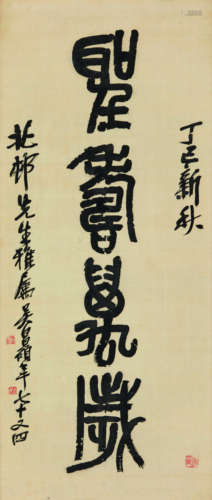 聖壽萬歲
丁巳新秋
北邨先生雅屬吳昌碩年七十又四